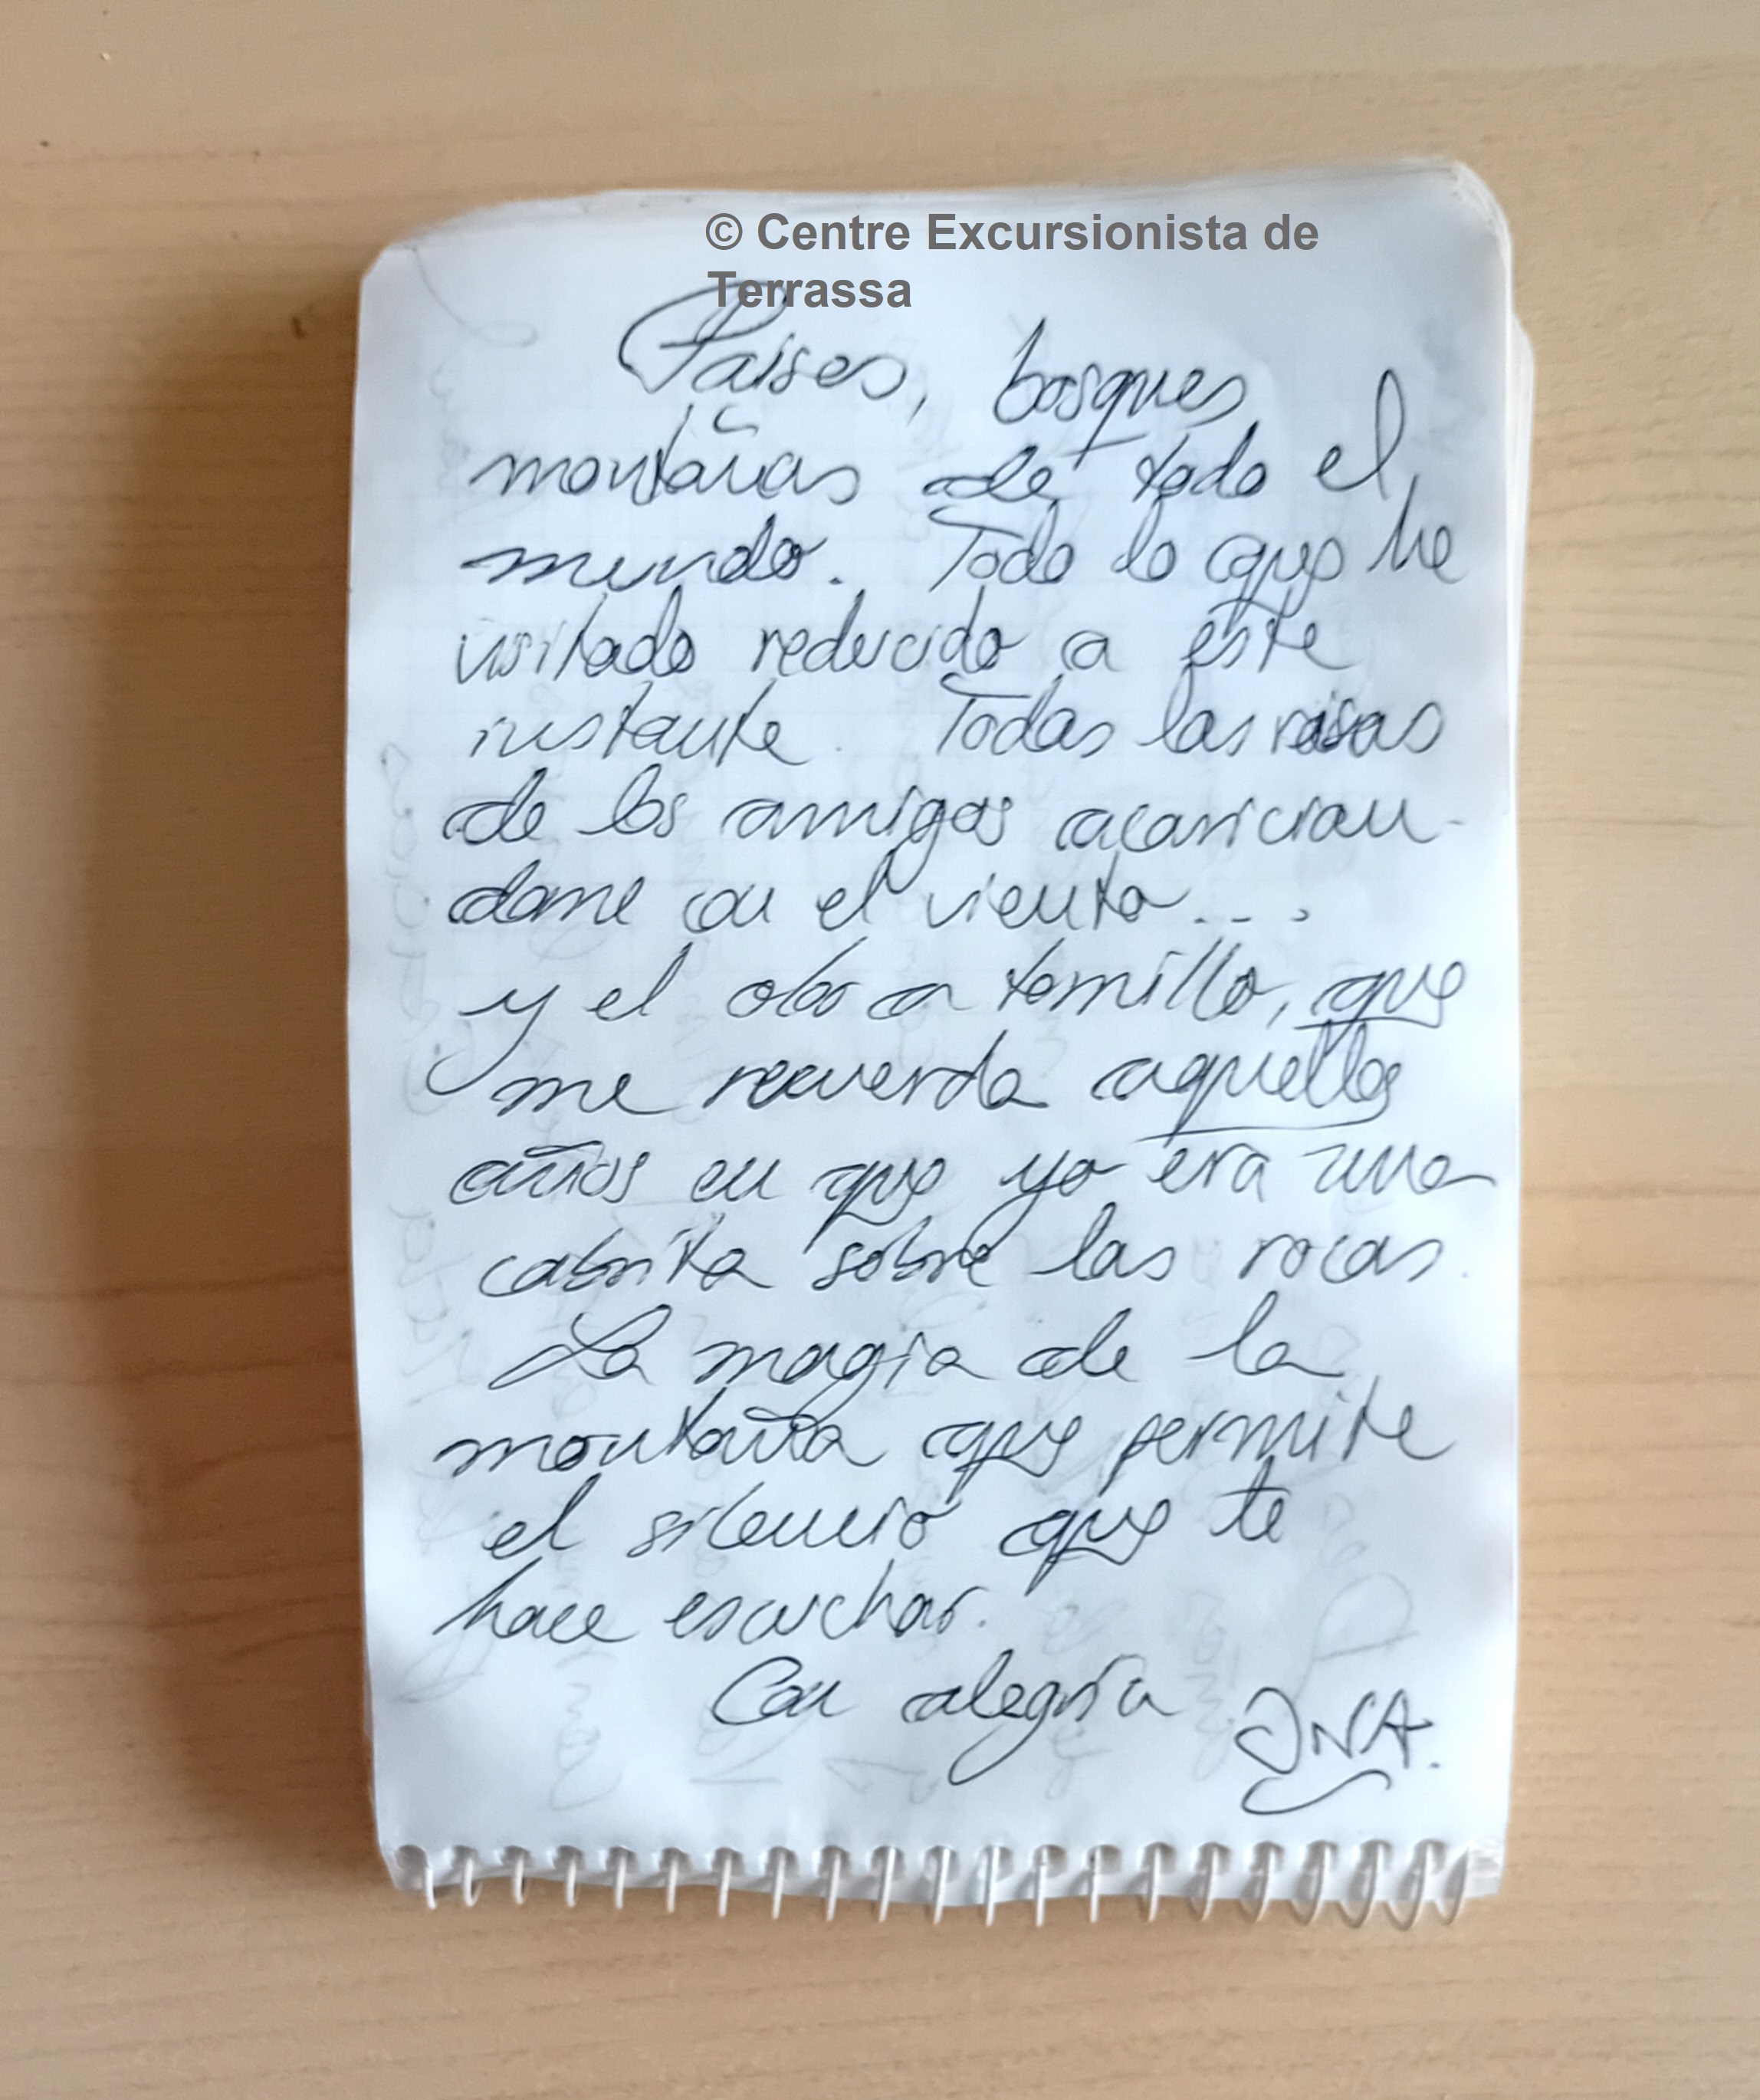 © Centre Excursionista de
Terrassa
Países, bosques,
montañas de todo el
mundo. Todo lo que he
visitado reducido a este
instante. Todas las risas
de los amigos acarician-
dome con el viento...
y el olor a tomillo, que
me recuerda aquellos
años en que yo era una
cabrita sobre las rocas.
La magia de la
montaña que permite
el silencio que te
hace escuchar.
Con alegría INA.